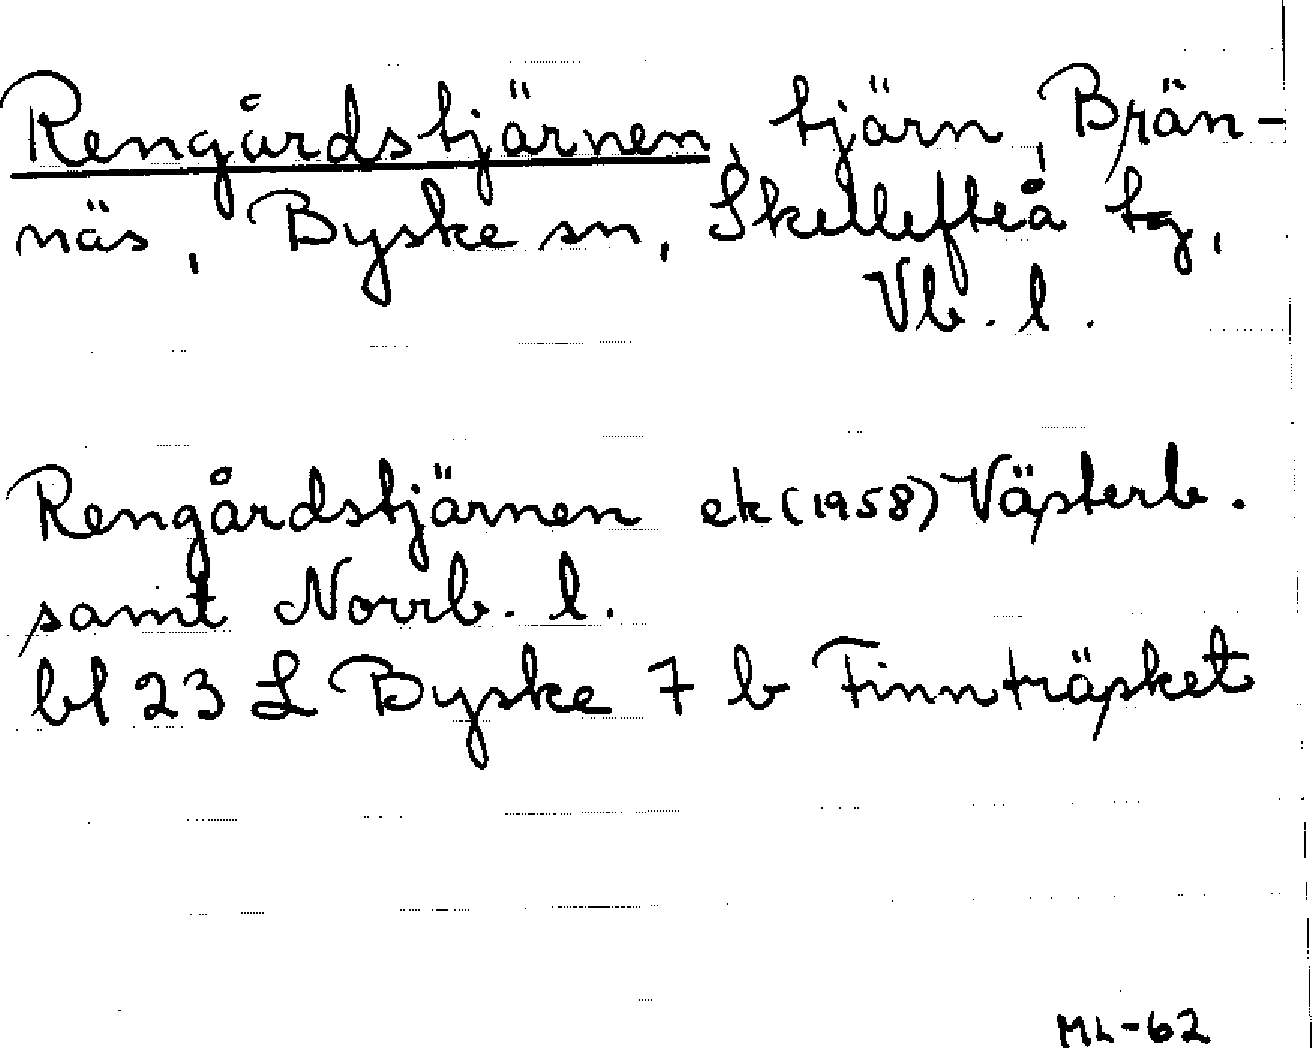 Rengårdstjärnen, tjärn, Brän-
näs, Byske sn, Skellefteå tg,
Vb. l.
Rengårdstjärnen ek (1958) Västerb.
samt Norrb. l.
bl 23 L Byske 7 b Finnträsket
ML-62